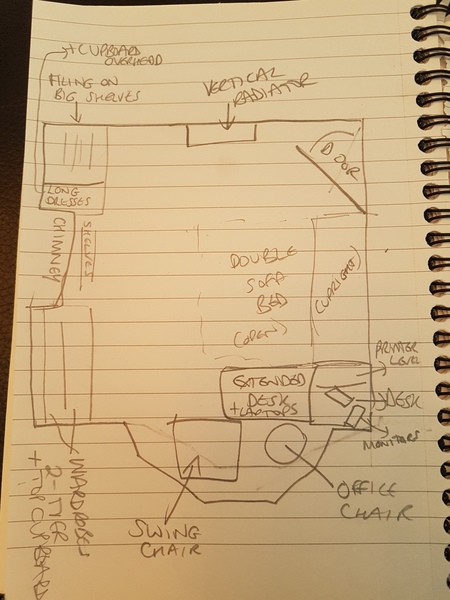 + CUPBOARD
OVERHEAD
FILING ON
BIG SHELVES
VERTICAL
RADIATOR
DOOR
LONG
DRESSES
CHIMNEY
SHELVES
DOUBLE
SOFA
BED
(OPEN)
(UPRIGHT)
PRINTER
LEVEL
EXTENDED
DESK
+ LAPTOPS
DESK
MONITORS
OFFICE
CHAIR
SWING
CHAIR
WARDROBES
2-TIER
+ TOP CUPBOARD